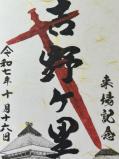 来場記念
吉野ヶ里
令和七年十月十六日